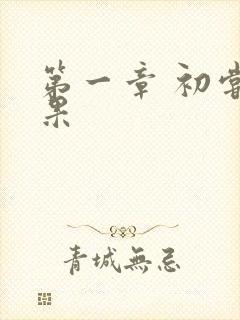 第一章 初嘗
果
青城無忌